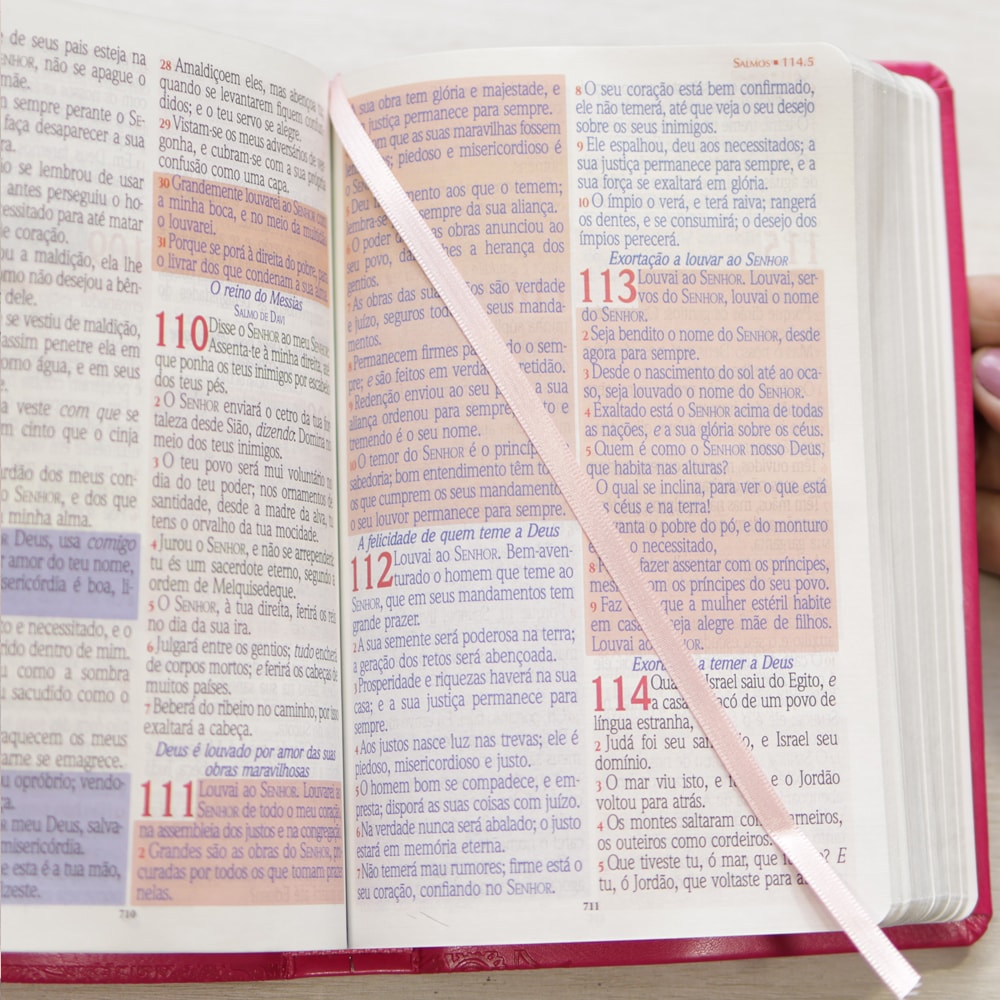 de seus pais esteja na
ENHOR, não se apague o
mãe.
m sempre perante o SE-
faça desaparecer a sua
ra.
o se lembrou de usar
antes perseguiu o ho-
essitado para até matar
e coração.
ou a maldição, ela lhe
omo não desejou a bên-
dele.
se vestiu de maldição,
assim penetre ela em
omo água, e em seus
a veste com que se
m cinto que o cinja
rdão dos meus con-
o SENHOR, e dos que
minha alma.
R Deus, usa comigo
r amor do teu nome,
isericórdia é boa, li-
re e necessitado, e o
rido dentro de mim.
u como a sombra
u sacudido como o
raquecem os meus
arne se emagrece.
u opróbrio; vendo-
ça.
R meu Deus, salva-
misericórdia.
e esta é a tua mão,
izeste.
28 Amaldiçoem eles, mas abençoa tu;
quando se levantarem fiquem confun-
didos; e o teu servo se alegre.
29 Vistam-se os meus adversários de ver-
gonha, e cubram-se com a sua própria
confusão como uma capa.
30 Grandemente louvarei ao SENHOR com
a minha boca, e no meio da multidão
o louvarei.
31 Porque se porá à direita do pobre, para
o livrar dos que condenam a sua alma.
O reino do Messias
SALMO DE DAVI
110 Disse o SENHOR ao meu Senhor:
Assenta-te à minha direita, até
que ponha os teus inimigos por escabelo
dos teus pés.
2 O SENHOR enviará o cetro da tua for-
taleza desde Sião, dizendo: Domina no
meio dos teus inimigos.
3 O teu povo será mui voluntário no
dia do teu poder; nos ornamentos de
santidade, desde a madre da alva, tu
tens o orvalho da tua mocidade.
4 Jurou o SENHOR, e não se arrependerá:
tu és um sacerdote eterno, segundo a
ordem de Melquisedeque.
5 O SENHOR, à tua direita, ferirá os reis
no dia da sua ira.
6 Julgará entre os gentios; tudo encherá
de corpos mortos; e ferirá os cabeças de
muitos países.
7 Beberá do ribeiro no caminho, por isso
exaltará a cabeça.
Deus é louvado por amor das suas
obras maravilhosas
111 Louvai ao SENHOR. Louvarei ao
SENHOR de todo o meu coração,
na assembleia dos justos e na congregação.
2 Grandes são as obras do SENHOR, pro-
curadas por todos os que tomam prazer
nelas.
710
SALMOS ▪ 114.5
A sua obra tem glória e majestade, e
justiça permanece para sempre.
com que as suas maravilhas fossem
piedoso e misericordioso é
o SENHOR
5 Deu mantimento aos que o temem;
sempre da sua aliança.
6 O poder das obras anunciou ao
seu povo, a herança dos
gentios.
7 As obras das suas são verdade
e juízo, seguros todos seus manda-
mentos.
8 Permanecem firmes para todo o sem-
pre; e são feitos em verdade e retidão.
9 Redenção enviou ao seu povo; a sua
aliança ordenou para sempre; e
tremendo é o seu nome.
10 O temor do SENHOR é o princípio
sabedoria; bom entendimento têm
os que cumprem os seus mandamentos
o seu louvor permanece para sempre.
A felicidade de quem teme a Deus
112 Louvai ao SENHOR. Bem-aven-
turado o homem que teme ao
SENHOR, que em seus mandamentos tem
grande prazer.
2 A sua semente será poderosa na terra;
a geração dos retos será abençoada.
3 Prosperidade e riquezas haverá na sua
casa; e a sua justiça permanece para
sempre.
4 Aos justos nasce luz nas trevas; ele é
piedoso, misericordioso e justo.
5 O homem bom se compadece, e em-
presta; disporá as suas coisas com juízo.
6 Na verdade nunca será abalado; o justo
estará em memória eterna.
7 Não temerá mau rumores; firme está o
seu coração, confiando no SENHOR.
8 O seu coração está bem confirmado,
ele não temerá, até que veja o seu desejo
sobre os seus inimigos.
9 Ele espalhou, deu aos necessitados; a
sua justiça permanece para sempre, e a
sua força se exaltará em glória.
10 O ímpio o verá, e terá raiva; rangerá
os dentes, e se consumirá; o desejo dos
ímpios perecerá.
Exortação a louvar ao SENHOR
113 Louvai ao SENHOR. Louvai, ser-
vos do SENHOR, louvai o nome
do SENHOR.
2 Seja bendito o nome do SENHOR, desde
agora para sempre.
3 Desde o nascimento do sol até ao oca-
so, seja louvado o nome do SENHOR.
4 Exaltado está o SENHOR acima de todas
as nações, e a sua glória sobre os céus.
5 Quem é como o SENHOR nosso Deus,
que habita nas alturas?
O qual se inclina, para ver o que está
céus e na terra!
Levanta o pobre do pó, e do monturo
o necessitado,
8 Para o fazer assentar com os príncipes,
mesmo com os príncipes do seu povo.
9 Faz com que a mulher estéril habite
em casa, e seja alegre mãe de filhos.
Louvai ao SENHOR.
Exortação a temer a Deus
114 Quando Israel saiu do Egito, e
a casa de Jacó de um povo de
língua estranha,
2 Judá foi seu santuário, e Israel seu
domínio.
3 O mar viu isto, e fugiu; e o Jordão
voltou para atrás.
4 Os montes saltaram como carneiros,
os outeiros como cordeiros.
5 Que tiveste tu, ó mar, que fugiste? E
tu, ó Jordão, que voltaste para
711